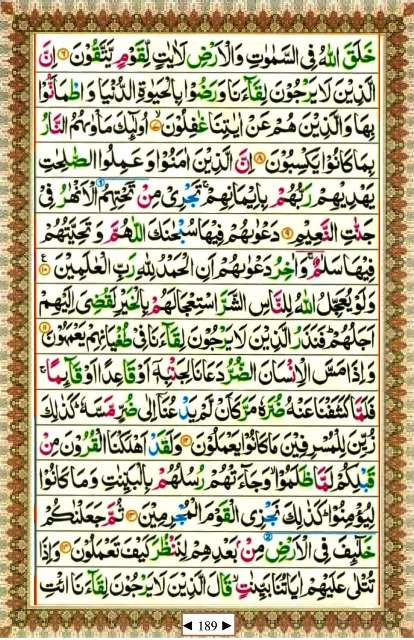 خَلَقَ اللّٰهُ فِى السَّمٰوٰتِ وَالْاَرْضِ لَاٰيٰتٍ لِّقَوْمٍ يَّتَّقُوْنَ ۝٦ اِنَّ
الَّذِيْنَ لَا يَرْجُوْنَ لِقَآءَنَا وَرَضُوْا بِالْحَيٰوةِ الدُّنْيَا وَاطْمَاَنُّوْا
بِهَا وَالَّذِيْنَ هُمْ عَنْ اٰيٰتِنَا غٰفِلُوْنَ ۝٧ اُولٰٓئِكَ مَاْوٰىهُمُ النَّارُ
بِمَا كَانُوْا يَكْسِبُوْنَ ۝٨ اِنَّ الَّذِيْنَ اٰمَنُوْا وَعَمِلُوا الصّٰلِحٰتِ
يَهْدِيْهِمْ رَبُّهُمْ بِاِيْمَانِهِمْ ۚ تَجْرِىْ مِنْ تَحْتِهِمُ الْاَنْهٰرُ فِىْ
جَنّٰتِ النَّعِيْمِ ۝٩ دَعْوٰىهُمْ فِيْهَا سُبْحٰنَكَ اللّٰهُمَّ وَتَحِيَّتُهُمْ
فِيْهَا سَلٰمٌ ۚ وَاٰخِرُ دَعْوٰىهُمْ اَنِ الْحَمْدُ لِلّٰهِ رَبِّ الْعٰلَمِيْنَ ۝١٠
وَلَوْ يُعَجِّلُ اللّٰهُ لِلنَّاسِ الشَّرَّ اسْتِعْجَالَهُمْ بِالْخَيْرِ لَقُضِىَ اِلَيْهِمْ
اَجَلُهُمْ ؕ فَنَذَرُ الَّذِيْنَ لَا يَرْجُوْنَ لِقَآءَنَا فِىْ طُغْيَانِهِمْ يَعْمَهُوْنَ ۝١١
وَاِذَا مَسَّ الْاِنْسَانَ الضُّرُّ دَعَانَا لِجَنْۢبِهٖۤ اَوْ قَاعِدًا اَوْ قَآئِمًا ۚ
فَلَمَّا كَشَفْنَا عَنْهُ ضُرَّهٗ مَرَّ كَاَنْ لَّمْ يَدْعُنَاۤ اِلٰى ضُرٍّ مَّسَّهٗ ؕ كَذٰلِكَ
زُيِّنَ لِلْمُسْرِفِيْنَ مَا كَانُوْا يَعْمَلُوْنَ ۝١٢ وَلَقَدْ اَهْلَكْنَا الْقُرُوْنَ مِنْ
قَبْلِكُمْ لَمَّا ظَلَمُوْا ۙ وَجَآءَتْهُمْ رُسُلُهُمْ بِالْبَيِّنٰتِ وَمَا كَانُوْا
لِيُؤْمِنُوْا ؕ كَذٰلِكَ نَجْزِى الْقَوْمَ الْمُجْرِمِيْنَ ۝١٣ ثُمَّ جَعَلْنٰكُمْ
خَلٰٓئِفَ فِى الْاَرْضِ مِنْۢ بَعْدِهِمْ لِنَنْظُرَ كَيْفَ تَعْمَلُوْنَ ۝١٤ وَاِذَا
تُتْلٰى عَلَيْهِمْ اٰيَاتُنَا بَيِّنٰتٍ ۙ قَالَ الَّذِيْنَ لَا يَرْجُوْنَ لِقَآءَنَا ائْتِ
◄ 189 ►